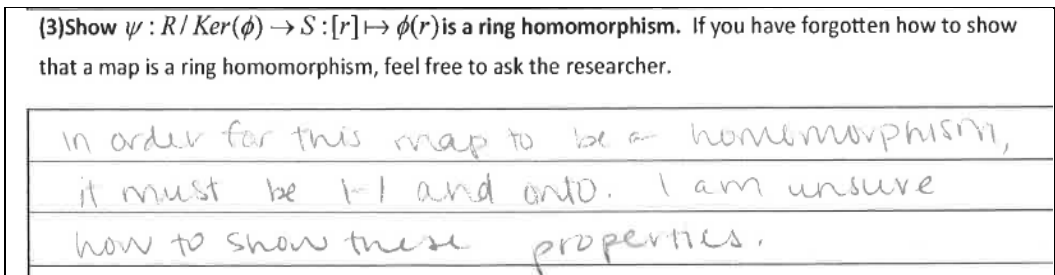 (3)Show ψ : R / Ker(ϕ) → S :[r]↦ ϕ(r)is a ring homomorphism. If you have forgotten how to show
that a map is a ring homomorphism, feel free to ask the researcher.
In order for this map to be a homomorphism,
it must be 1-1 and onto. I am unsure
how to show these properties.